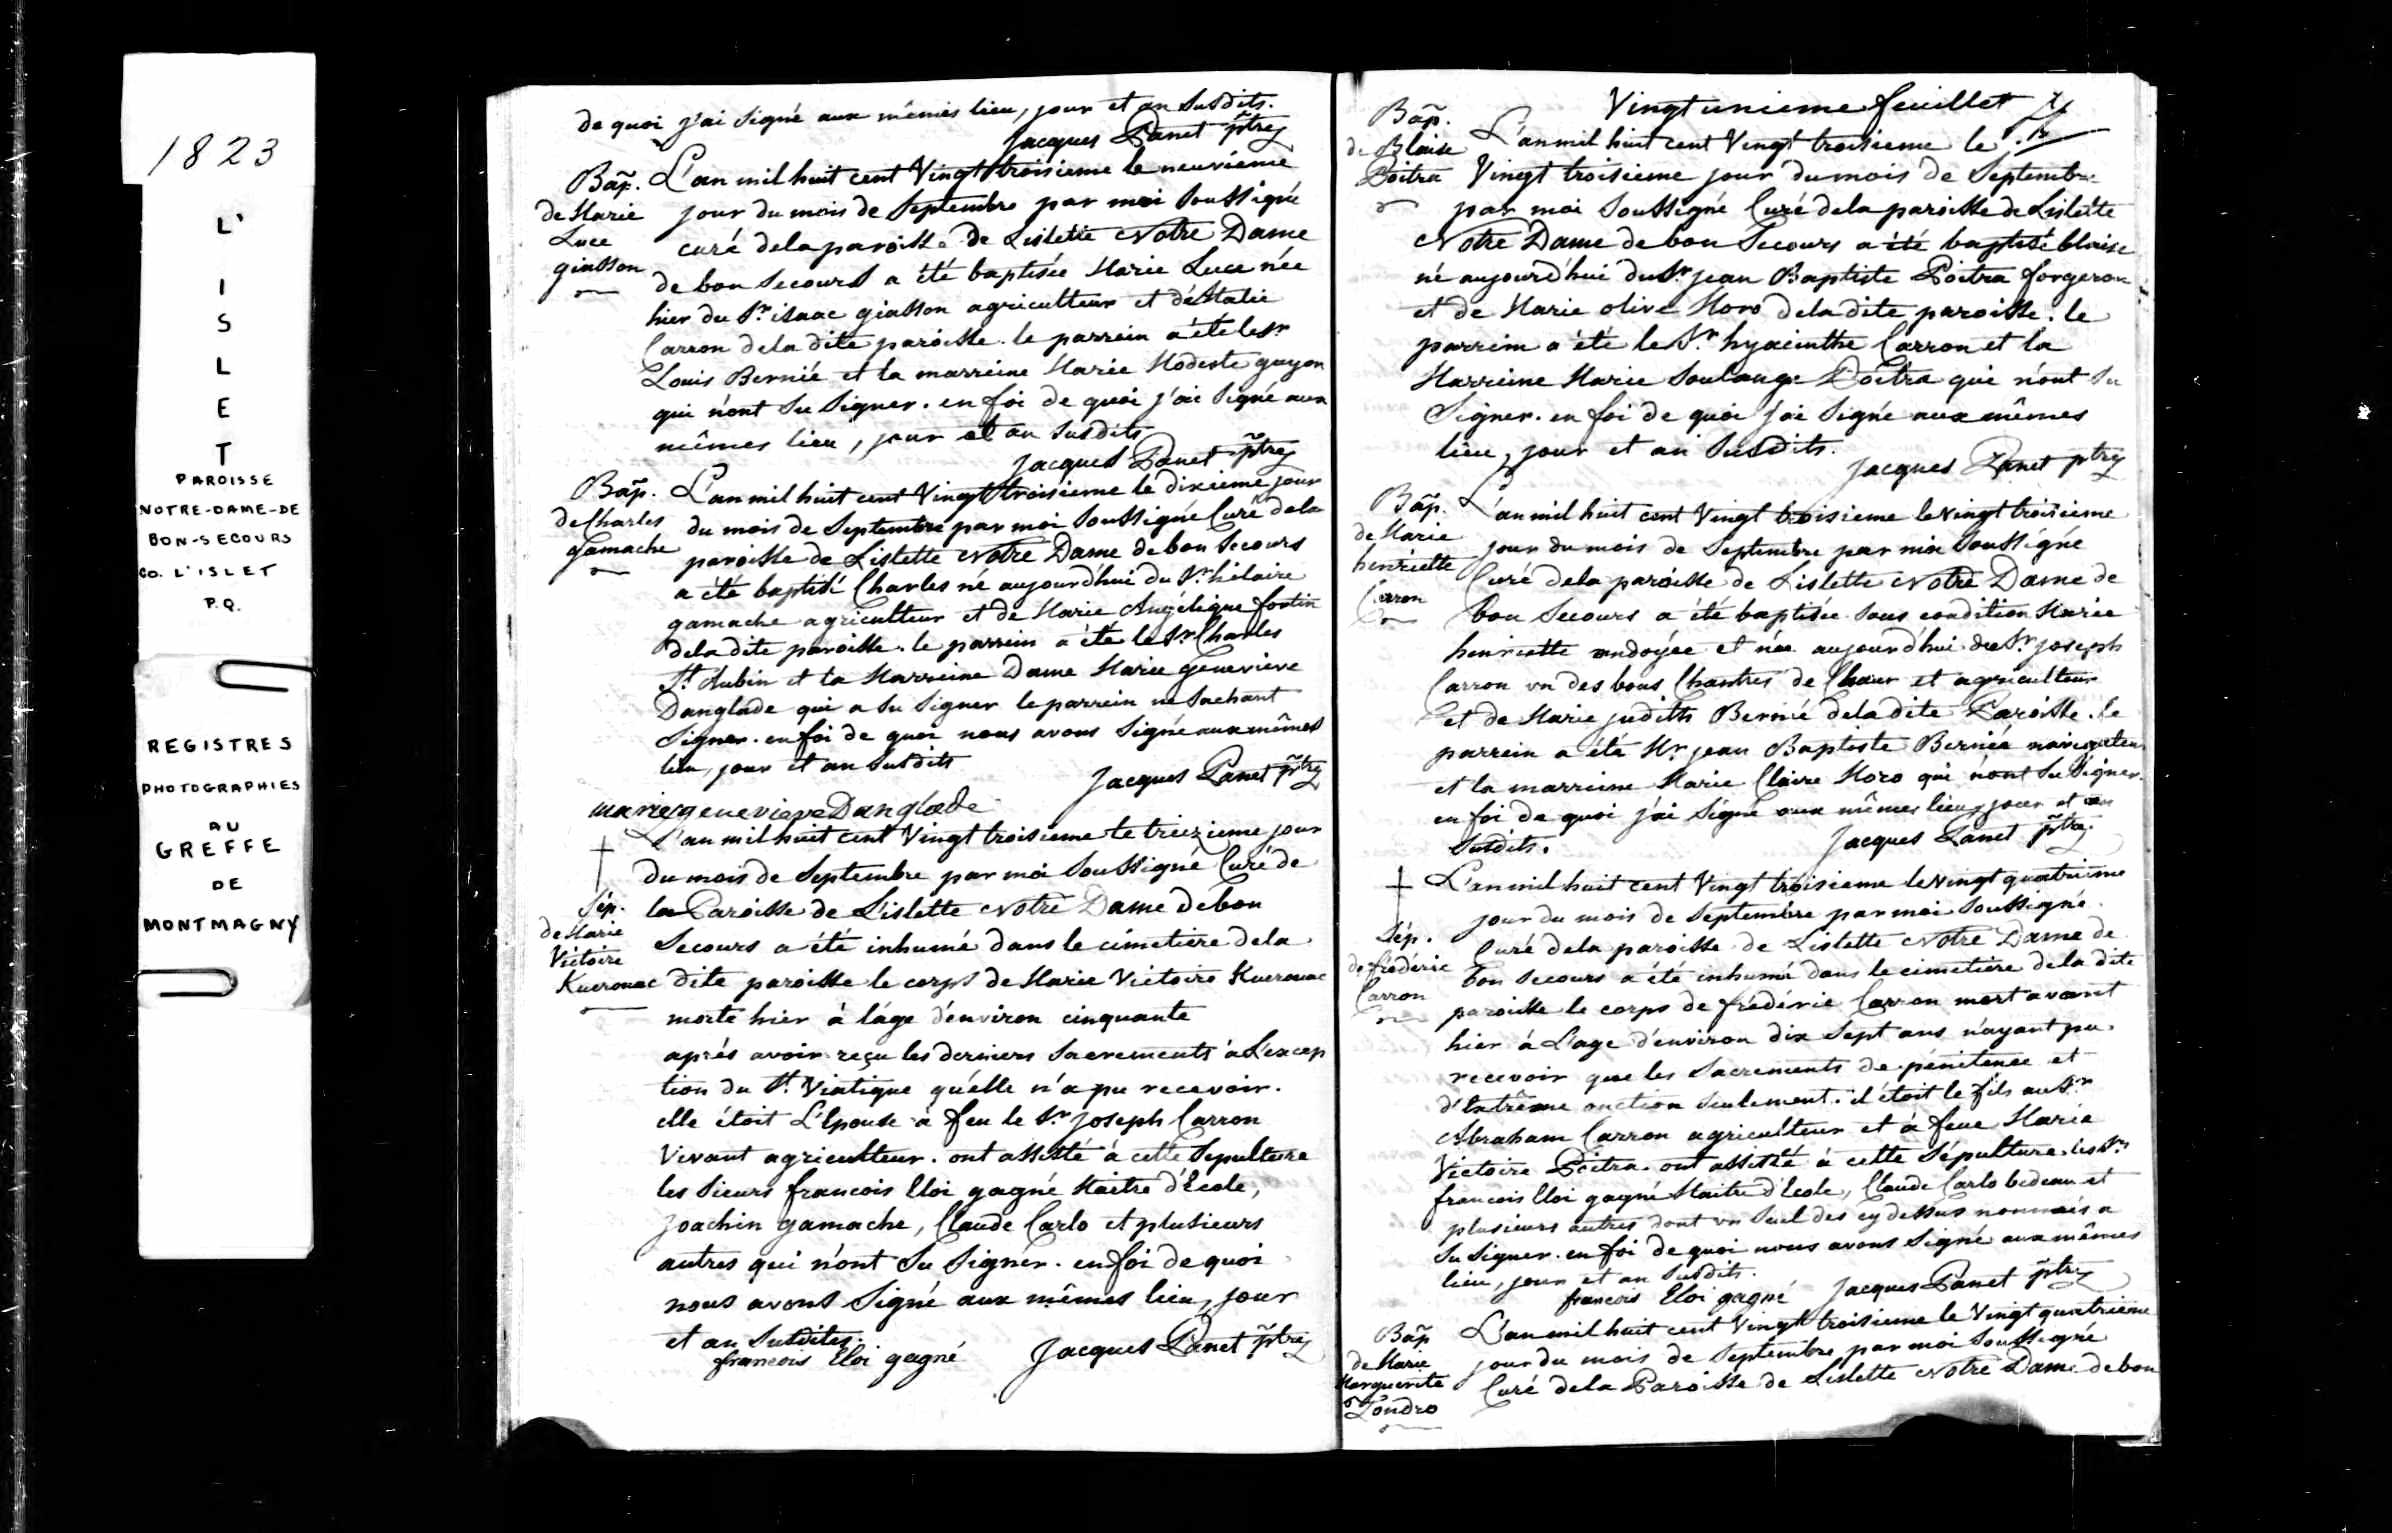 1823
L'
I
S
L
E
T
PAROISSE
NOTRE-DAME-DE
BON-SECOURS
CO. L'ISLET
P.Q.
REGISTRES
PHOTOGRAPHIES
AU
GREFFE
DE
MONTMAGNY
de quoi j'ai signé aux mêmes lieu, jour et an susdits.
Jacques Panet ptre
Bap. L'an mil huit cent Vingt troisieme le neuvieme
de Marie jour du mois de Septembre par moi soussigné
Luce curé dela paroisse de Lislette Notre Dame
giasson de bon secours a été baptisée Marie Luce née
hier du Sr. isaac giasson agriculteur et de
Carron dela dite paroisse. le parrein a été le Sr
Louis Bernié et la marreine Marie Modeste guyon
qui n'ont su signer. en foi de quoi j'ai signé aux
mêmes lieu, jour et an susdits
Jacques Panet ptre
Bap. L'an mil huit cent Vingt troisieme le dixieme jour
de Charles du mois de Septembre par moi soussigné Curé dela
Gamache paroisse de Lislette Notre Dame de bon secours
a été baptisé Charles né aujourd'hui du Sr. hilaire
gamache agriculteur et de Marie Angélique fortin
dela dite paroisse. le parrein a été le Sr. Charles
St. Aubin et la Marreine Dame Marie genevieve
Danglade qui a su signer le parrein ne sachant
signer. en foi de quoi nous avons signé aux mêmes
lieu, jour et an susdits
Jacques Panet ptre
marie genevieve Danglade
L'an mil huit cent Vingt troisieme le treizieme jour
du mois de Septembre par moi soussigné Curé de
Sep. la Paroisse de Lislette Notre Dame de bon
de Marie
Victoire Secours a été inhumé dans le cimetiere dela
Kuerouac dite paroisse le corps de Marie Victoire Kuerouac
morte hier à l'âge d'environ cinquante
après avoir reçu les derniers sacrements à l'excep
tion du St. Viatique qu'elle n'a pu recevoir.
elle étoit L'Epouse à feu le Sr. Joseph Carron
Vivant agriculteur. ont assisté à cette Sepulture
les Sieurs francois Eloi gagné Maitre d'Ecole,
Joachin gamache, Claude Carlo et plusieurs
autres qui n'ont su signer. en foi de quoi
nous avons signé aux mêmes lieu, jour
et an susdites.
francois Eloi gagné Jacques Panet ptre
Vingt unieme feuillet
Bap. L'an mil huit cent Vingt troisieme le
de Blaise
Poitra Vingt troisieme jour du mois de Septembre
par moi soussigné Curé dela paroisse de Lislette
Notre Dame de bon Secours a été baptisé blaise
né aujourd'hui du Sr. jean Baptiste Poitra forgeron
et de Marie olive Moro dela dite paroisse. le
parrein a été le Sr. hyacinthe Carron et la
Marreine Marie Soulange Poitra qui n'ont su
signer. en foi de quoi j'ai signé aux mêmes
lieu, jour et an susdits.
Jacques Panet ptre
Bap. L'an mil huit cent Vingt troisieme le vingt troisieme
de Marie jour du mois de Septembre par moi soussigné
henriette Curé dela paroisse de Lislette Notre Dame de
Carron bon Secours a été baptisée sous condition Marie
henriette ondoyée et née aujourd'hui du Sr. joseph
Carron un des bons Chantres de Chœur et agriculteur
et de Marie judith Bernié dela dite Paroisse. le
parrein a été Mr. jean Baptiste Bernié
et la marreine Marie Claire Moro qui n'ont su signer.
en foi de quoi j'ai signé aux mêmes lieu, jour et an
susdits.
Jacques Panet ptre
L'an mil huit cent Vingt troisieme le vingt quatrieme
jour du mois de Septembre par moi soussigné
Sép. Curé dela paroisse de Lislette Notre Dame de
de fréderic bon secours a été inhumé dans le cimetiere dela dite
Carron paroisse le corps de fréderic Carron mort avant
hier à L'age d'environ dix sept ans n'ayant pu
recevoir que les Sacrements de pénitence et
d'Extrême onction seulement. il étoit le fils au Sr
Abraham Carron agriculteur et à feue Marie
Victoire Poitra. ont assisté à cette Sépulture les Srs
francois Eloi gagné Maitre d'Ecole, Claude Carlo bedeau et
plusieurs autres dont un seul des cy dessus nommés a
su signer. en foi de quoi nous avons signé aux mêmes
lieu, jour et an susdits.
francois Eloi gagné Jacques Panet ptre
Bap L'an mil huit cent Vingt troisieme le Vingt quatrieme
de Marie jour du mois de Septembre par moi soussigné
Marguerite Curé dela Paroisse de Lislette Notre Dame de bon